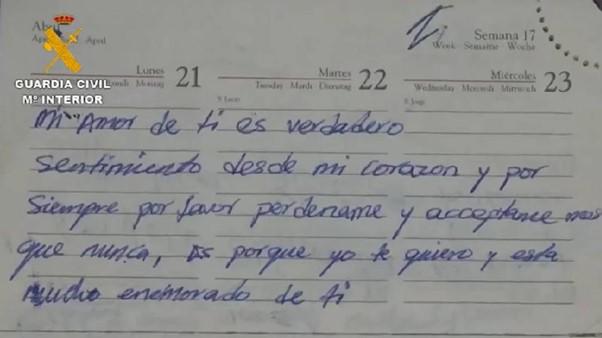 Abril
April
Semana 17
Week Semaine Woche
Lunes 21
Lundi Montag
Martes 22
Tuesday Mardi Dienstag
Miércoles 23
Wednesday Mercredi Mittwoch
GUARDIA CIVIL
Mº INTERIOR
Mi Amor de ti es verdadero
Sentimiento desde mi corazon y por
Siempre por favor perdename y acceptame mas
que nunca, es porque yo te quiero y esta
mucho enemorado de ti